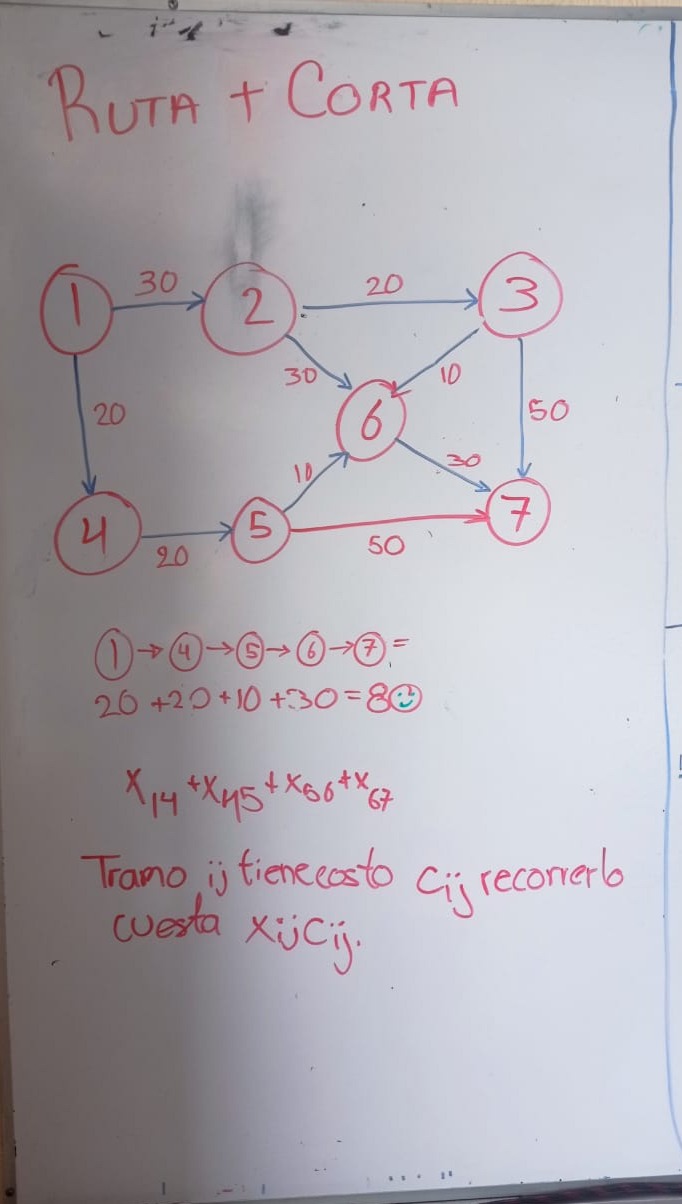 RUTA + CORTA
1 30 2 20 3
20 30 10 50
6
10 30
4 20 5 50 7
1 → 4 → 5 → 6 → 7 =
20 + 20 + 10 + 30 = 80
X14 + X45 + X56 + X67
Tramo ij tiene costo Cij recorrerlo
cuesta XijCij.